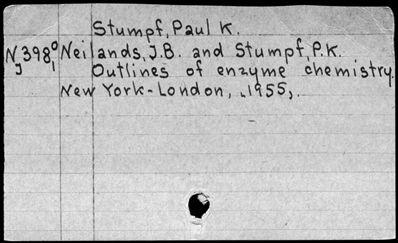 Stumpf, Paul K.
N 398,0 Neilands, J.B. and Stumpf, P.K.
J 1 Outlines of enzyme chemistry.
New York-London, 1955,